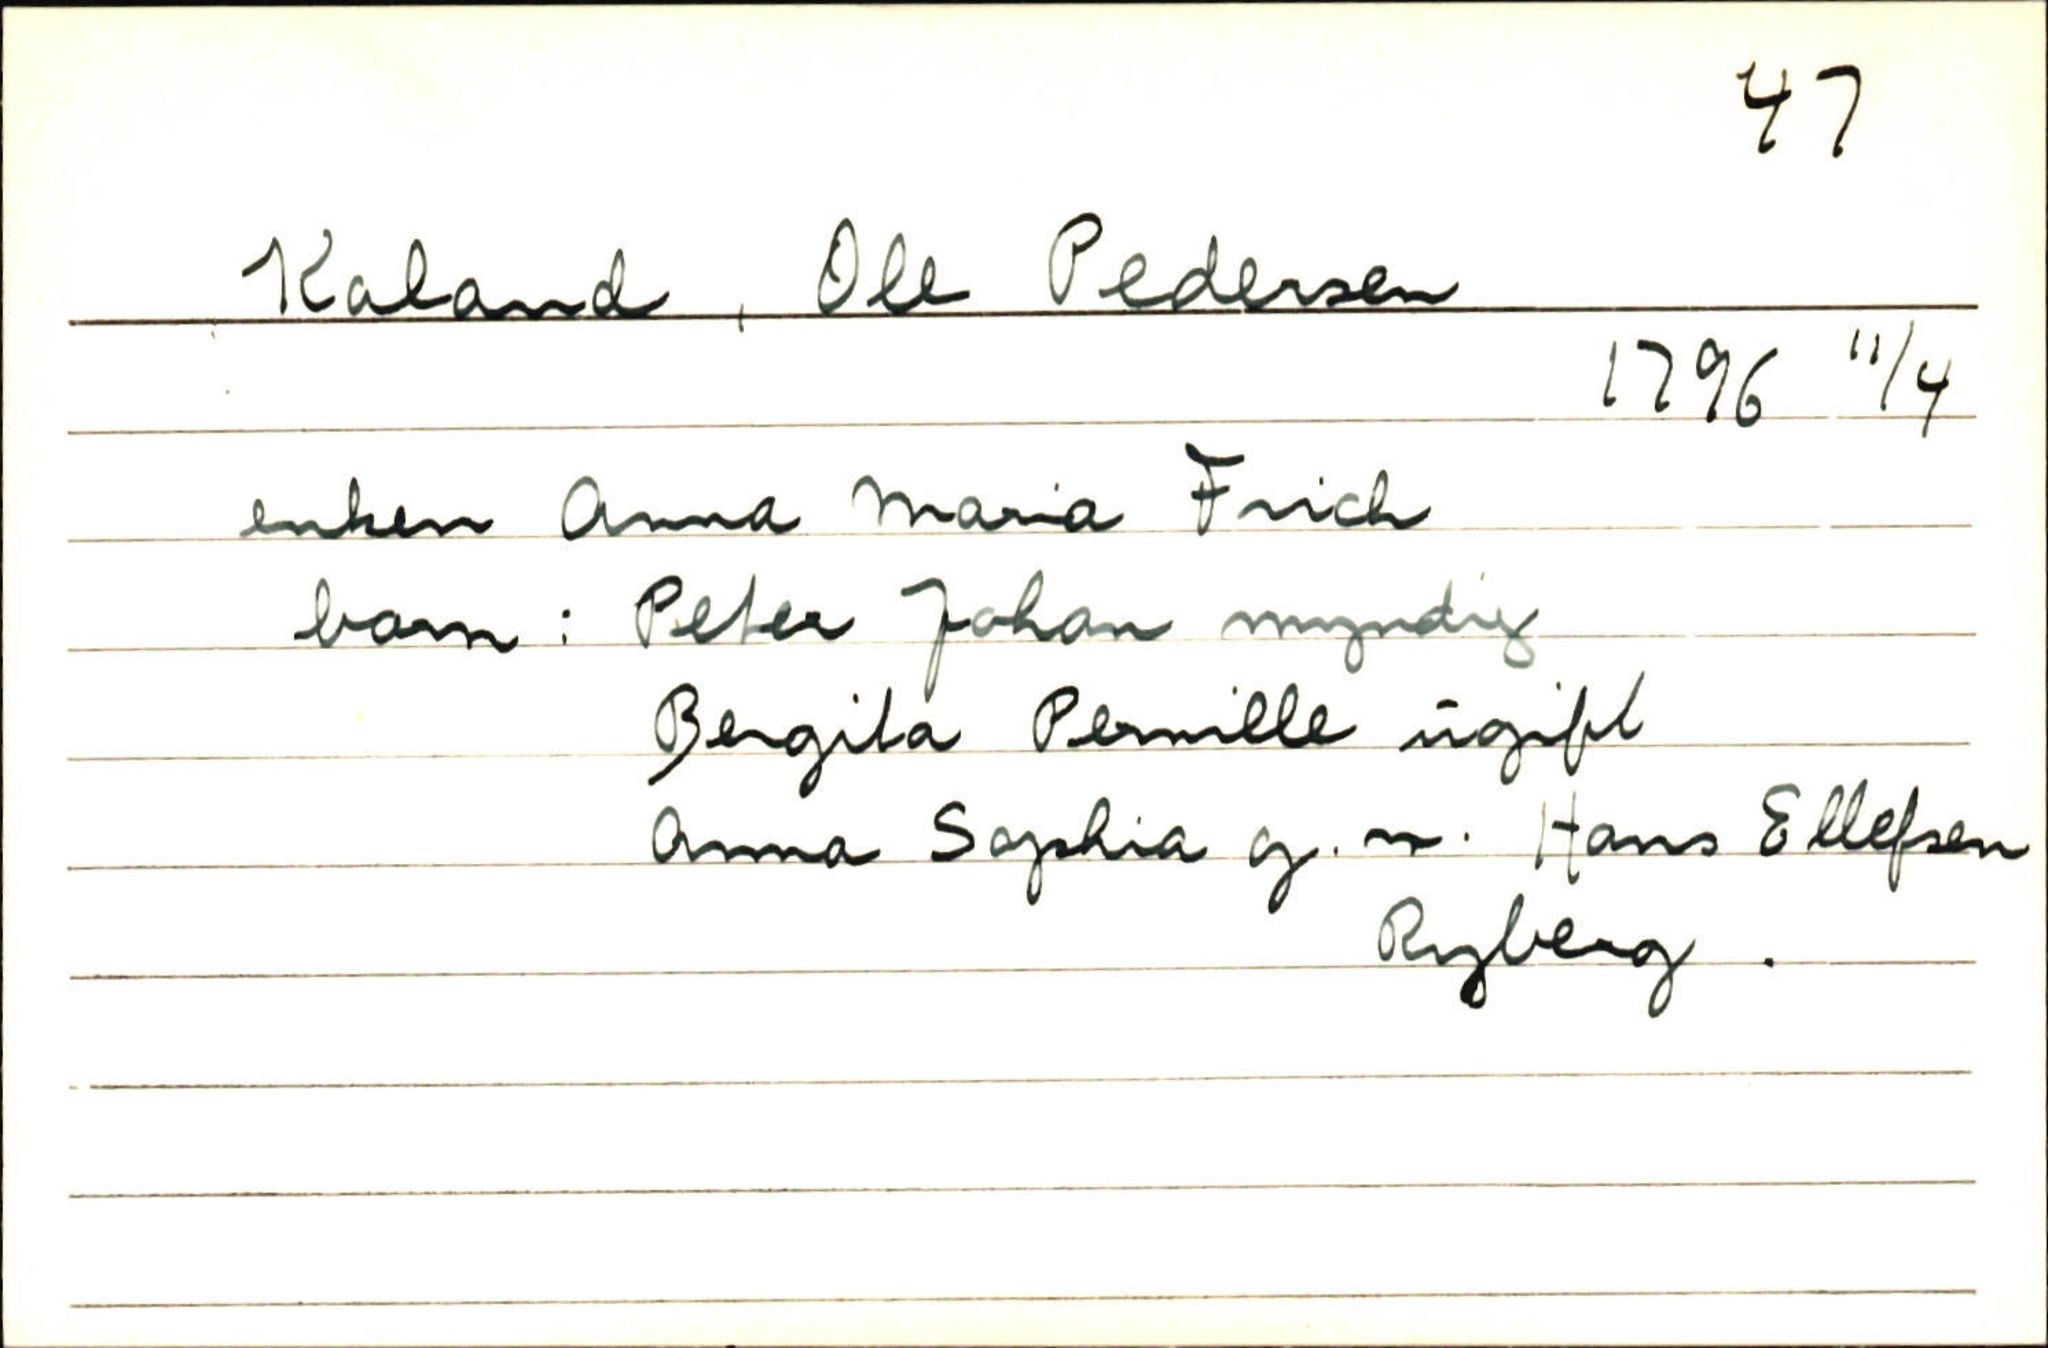 47
Kaland, Ole Pedersen
1796 11/4
enken Anna Maria Frich
barn: Peter Johan myndig
Bergita Pernille ugift
Anna Sophia g. m. Hans Ellefsen
Ryberg.